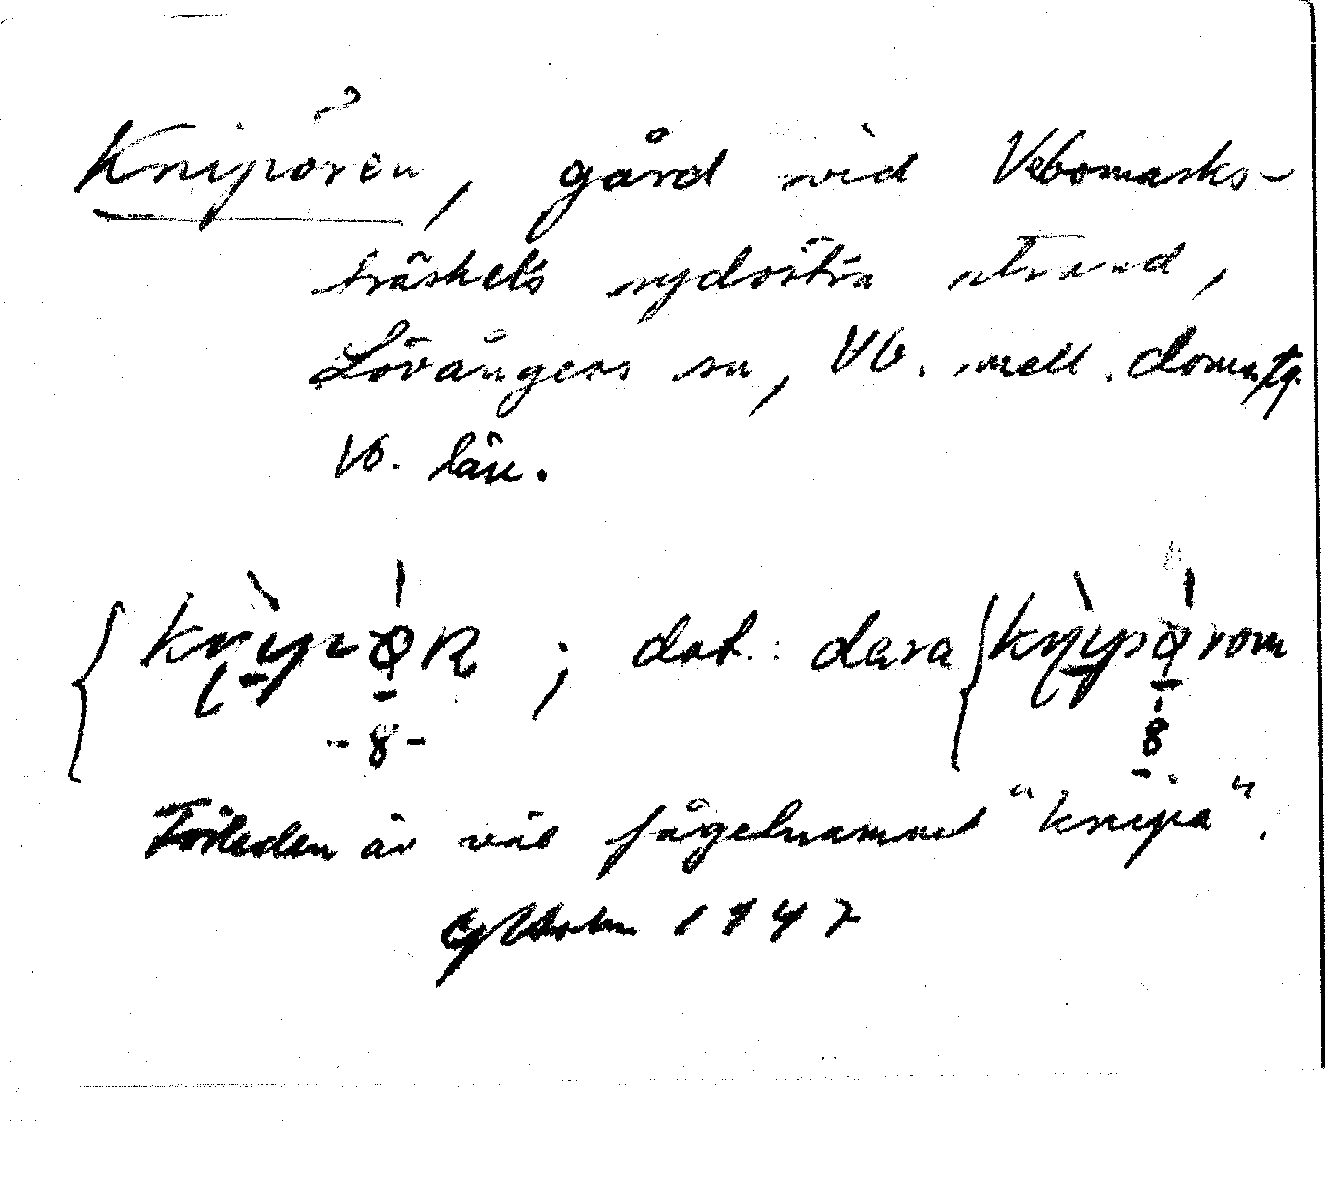 Kniporen, gård vid Vebomarks-
träskets sydöstra strand,
Lövångers sn, Vb. mell. domstg.
Vb. län.
; dat. dara
-8- 8
Förleden är väl fågelnamnet "knipa".
1947